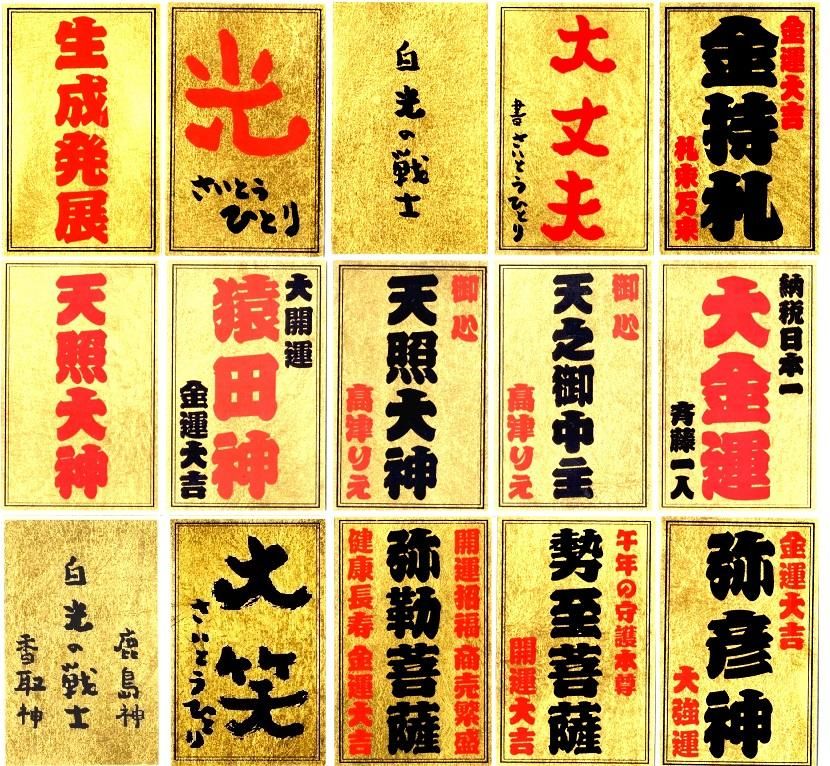 生成発展
光
さいとうひとり
白光の戦士
大丈夫
書さいとうひとり
金運大吉
金持札
札束万来
天照大神
大開運
猿田神
金運大吉
御心
天照大神
高津りえ
御心
天之御中主
高津りえ
納税日本一
大金運
斉藤一人
鹿島神
白光の戦士
香取神
大笑
さいとうひとり
開運招福 商売繁盛
弥勒菩薩
健康長寿 金運大吉
午年の守護本尊
勢至菩薩
開運大吉
金運大吉
弥彦神
大強運